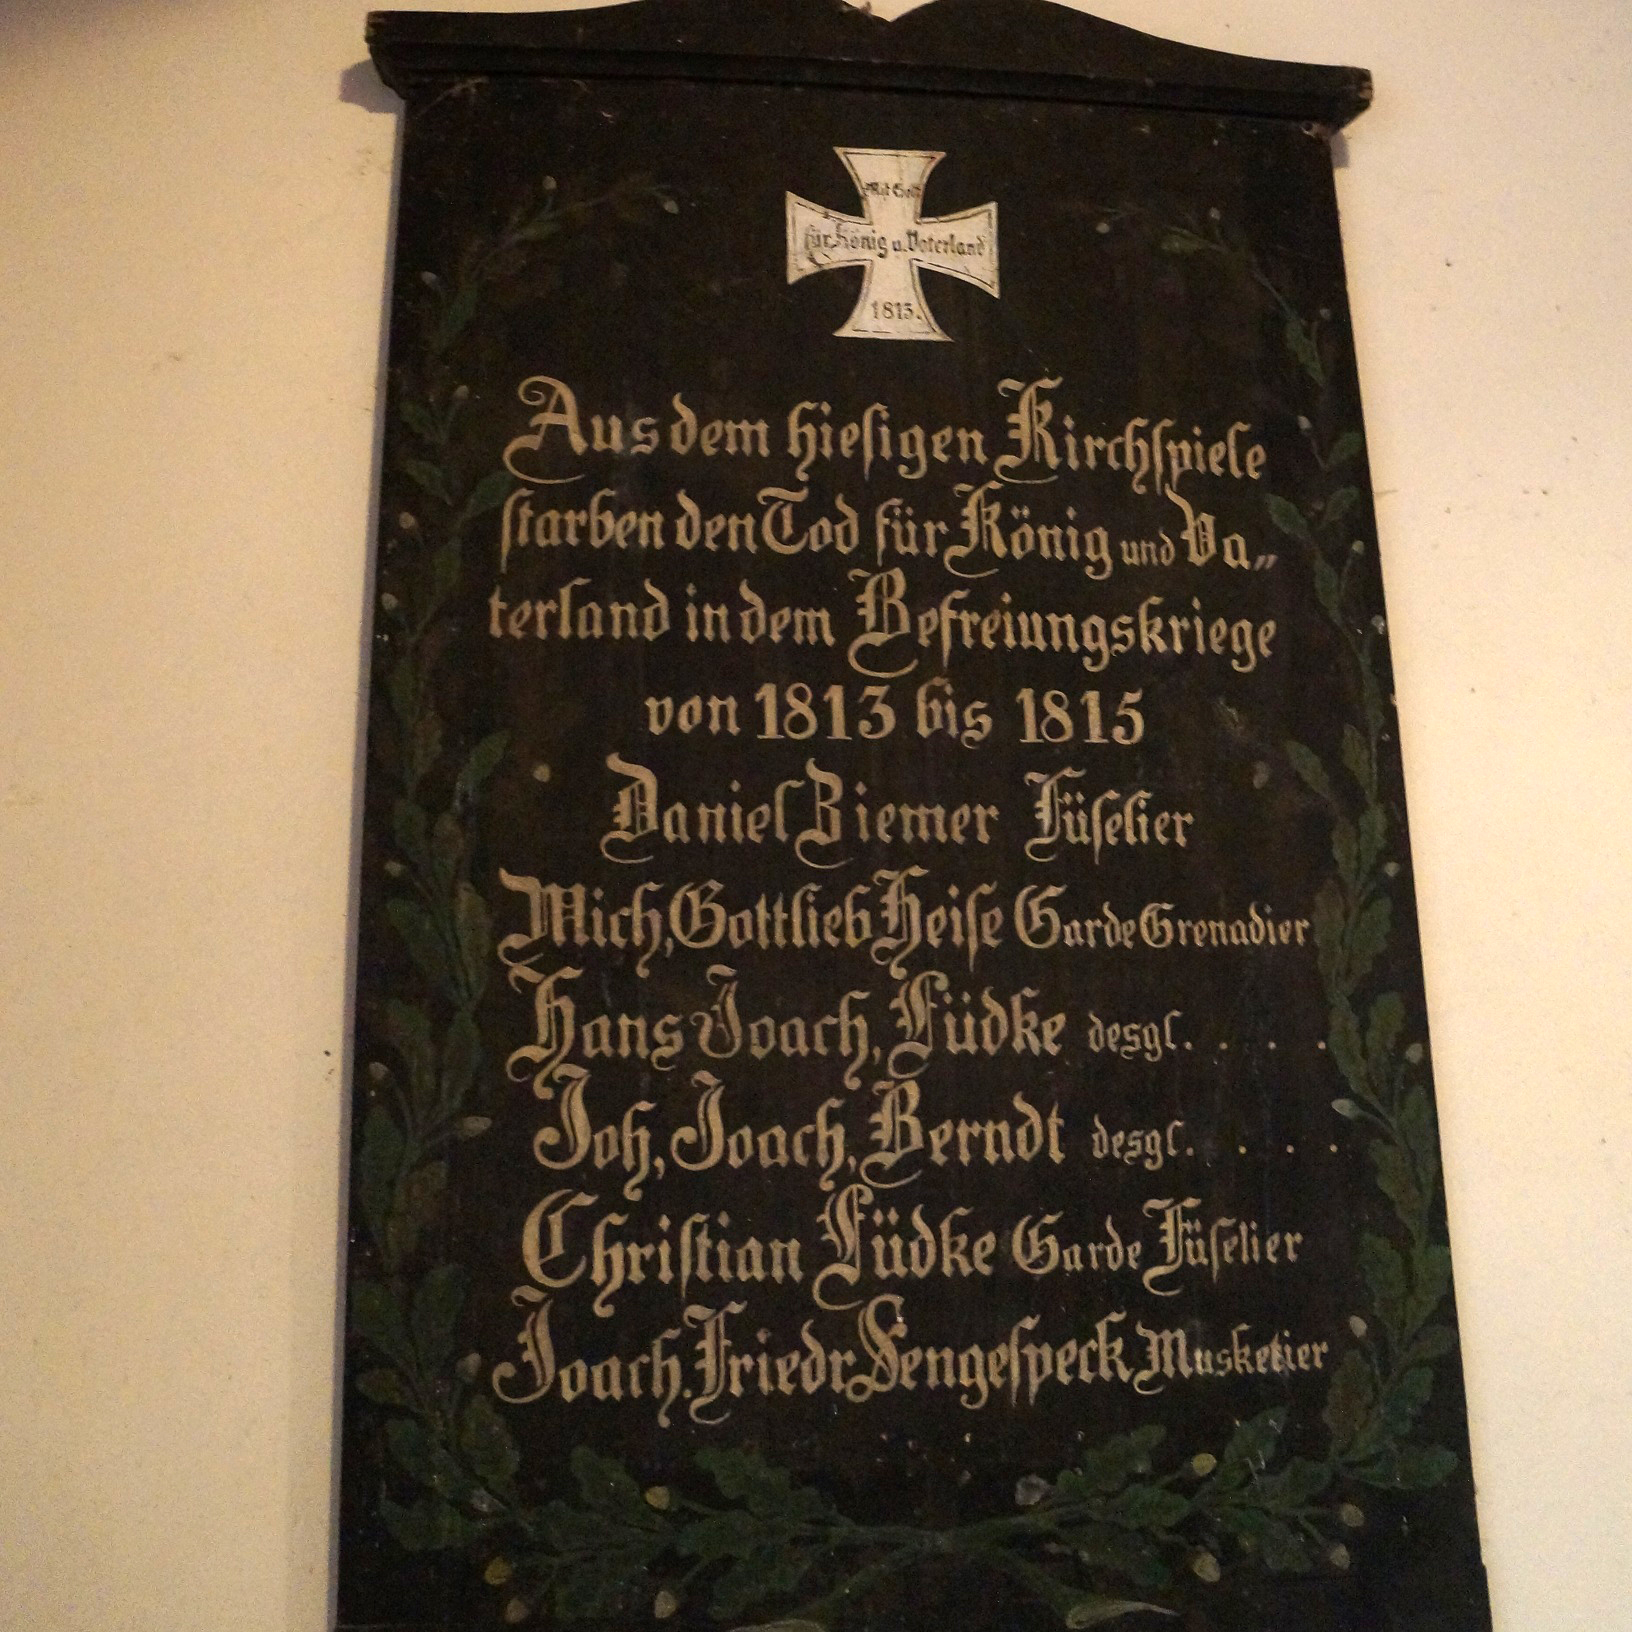 Mit Gott
für König u. Vaterland
1813.
Aus dem hieſigen Kirchſpiele
ſtarben den Tod für König und Va„
terland in dem Befreiungskriege
von 1813 bis 1815
Daniel Ziemer Füſelier
Mich, Gottlieb Heiſe Garde Grenadier
Hans Joach, Lüdke desgl. . . . .
Joh, Joach, Berndt desgl. . . . .
Chriſtian Lüdke Garde Füſelier
Joach. Friedr Sengeſpeck Musketier